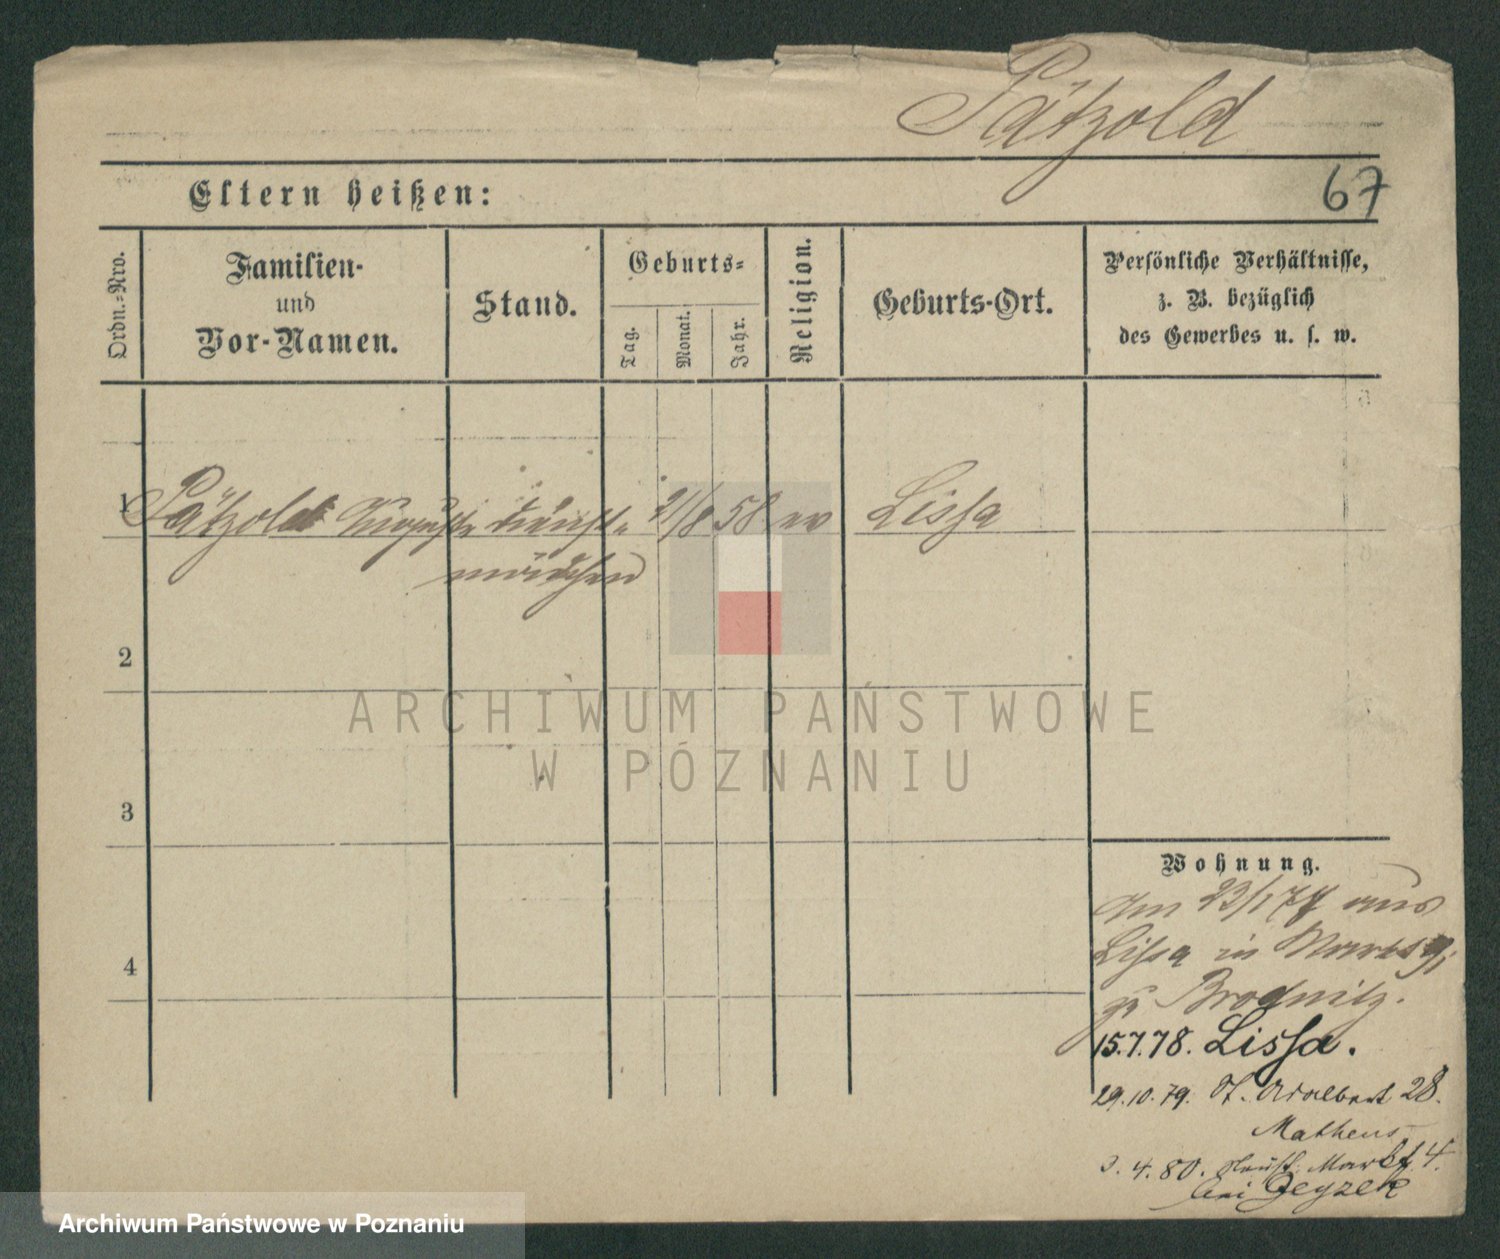 Pätzold
67
Eltern heißen:
Ordn.-Nro.
Familien-
und
Vor-Namen.
Stand.
Geburts-
Tag.
Monat.
Jahr.
Religion.
Geburts-Ort.
Persönliche Verhältnisse,
z. B. bezüglich
des Gewerbes u. s. w.
1 Pätzold Auguste Dienst- 21/8 58 ev Lissa
mädchen
2
ARCHIWUM PAŃSTWOWE
W POZNANIU
3
Wohnung.
Am 23/1 77 aus
Lissa in
zu Brodnitz.
4
15.7.78. Lissa.
29.10.79. St. Adalbert 28.
Matheus
3.4.80. Neust. Markt 4.
bei Geyzek
Archiwum Państwowe w Poznaniu